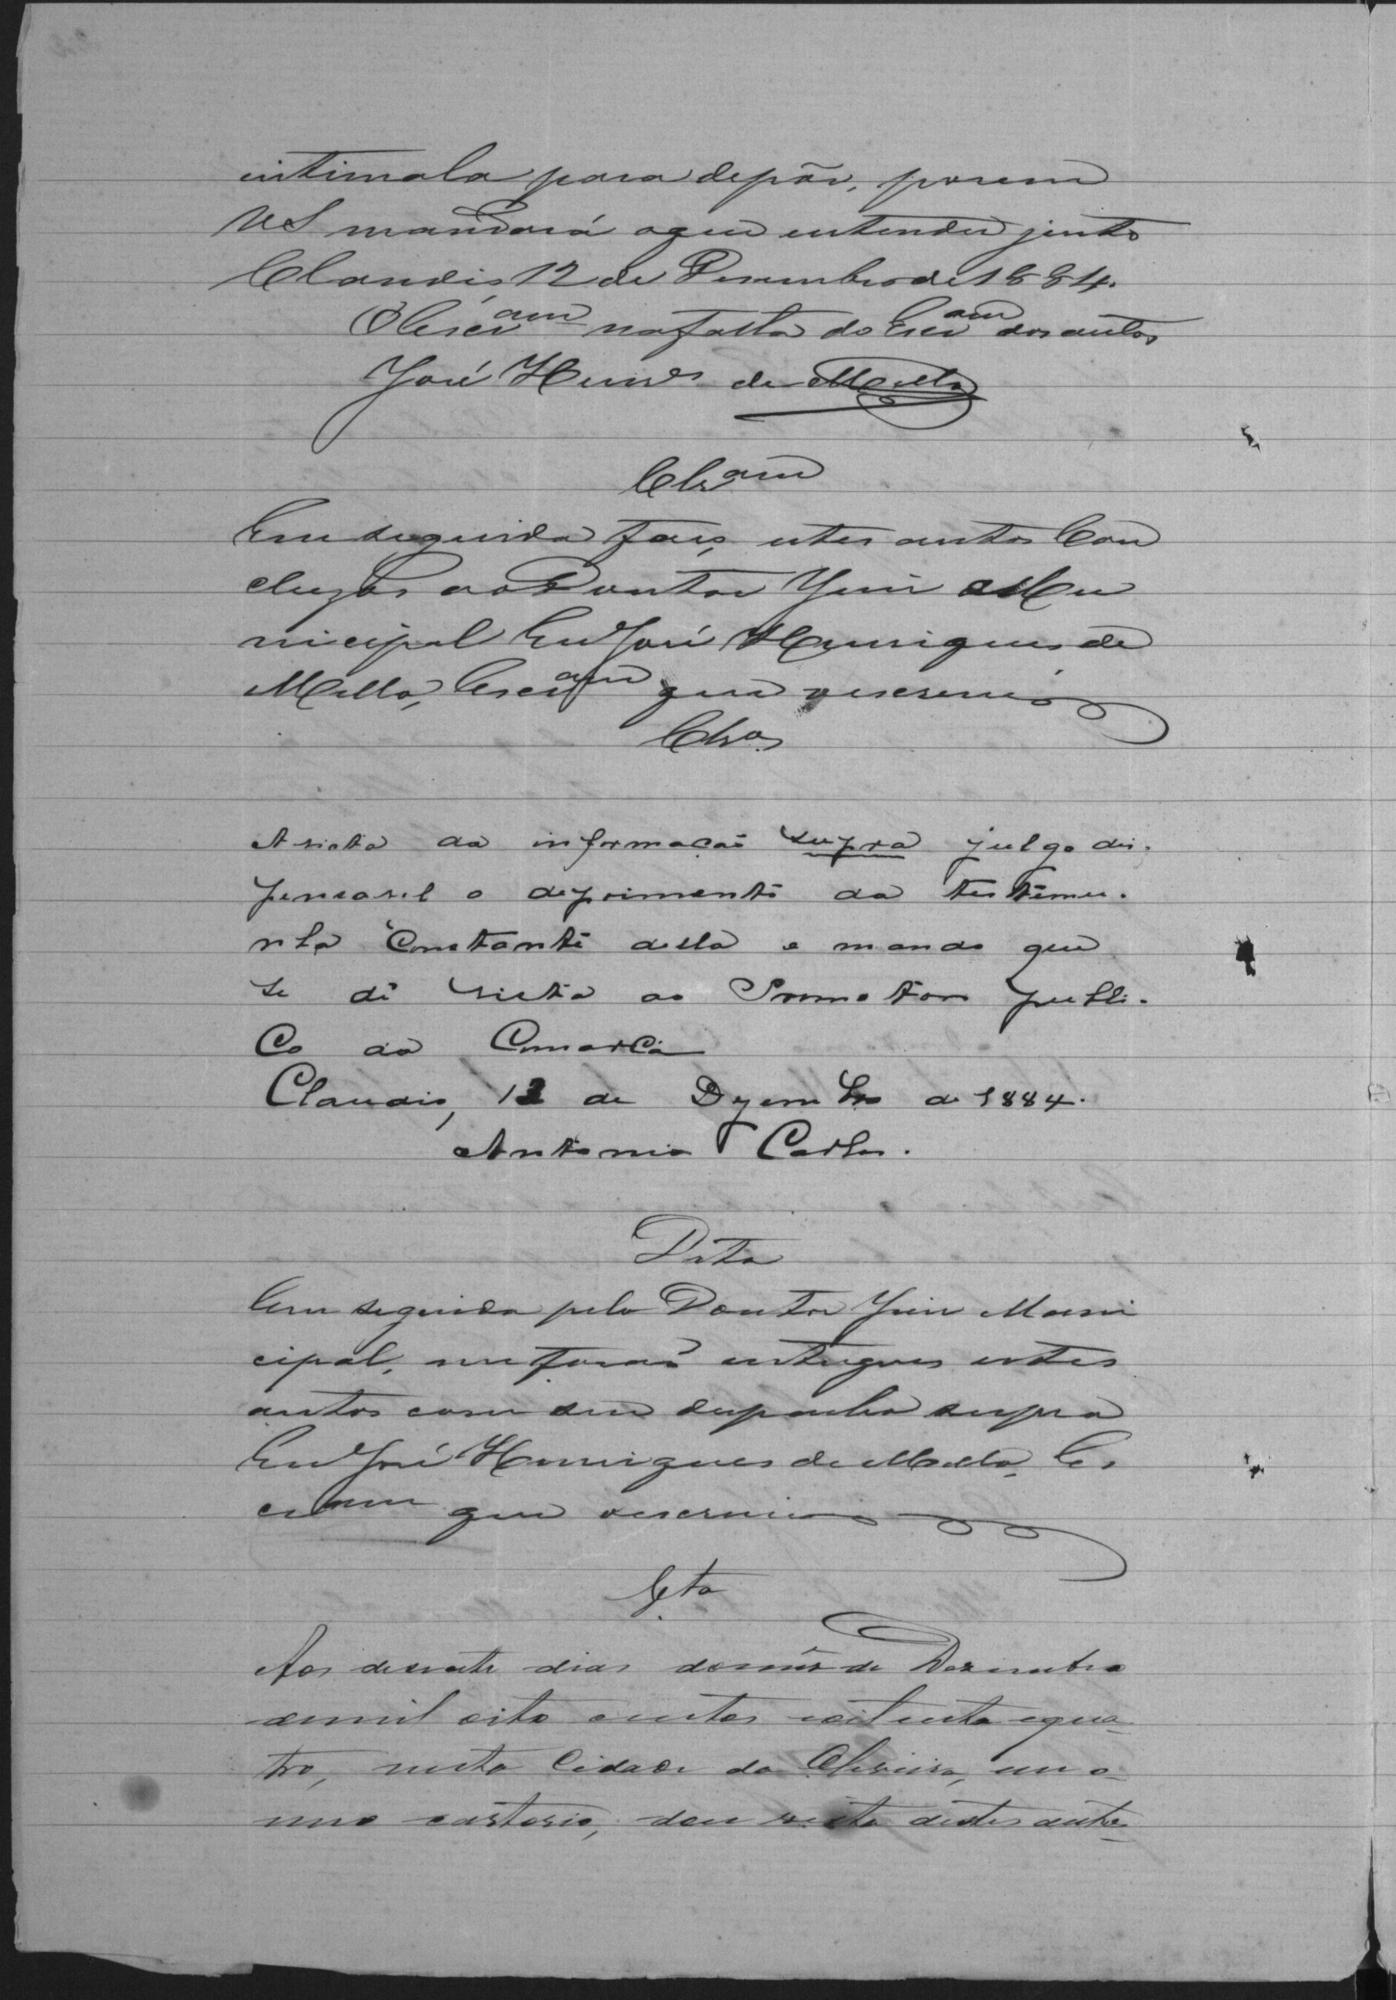 intimala para depôr, porem
VS mandará o que entender justo
Claudio, 12 de Desembro de 1884.
O Escr.am na falta do Escr.am dos autos
José Henr.es de Mello
Clz.am
Em seguida faço estes autos Con
cluzos ao Doutor Juiz Mu
nicipal Eu José Henriques de
Mello, Escr.am que o escrevi
Clz.os
A vista da informação supra julgo dis-
pensavel o depoimento da testemu-
nha Constante della e mando que
se dê vista ao Promotor publi-
co da Comarca
Claudio, 12 de Dezembro de 1884.
Antonio Carlos.
Dita
Em seguida pelo Doutor Juiz Muni
cipal, me forão entregues estes
autos com seu despacho supra
Eu José Henriques de Mello, Es
cr.am que o escrevi
V.ta
Aos desoete dias do mês de Dezembro
de mil oito centos e oitenta e qua-
tro, nesta Cidade da Oliveira, em o
meo cartorio, dou vista destes autos